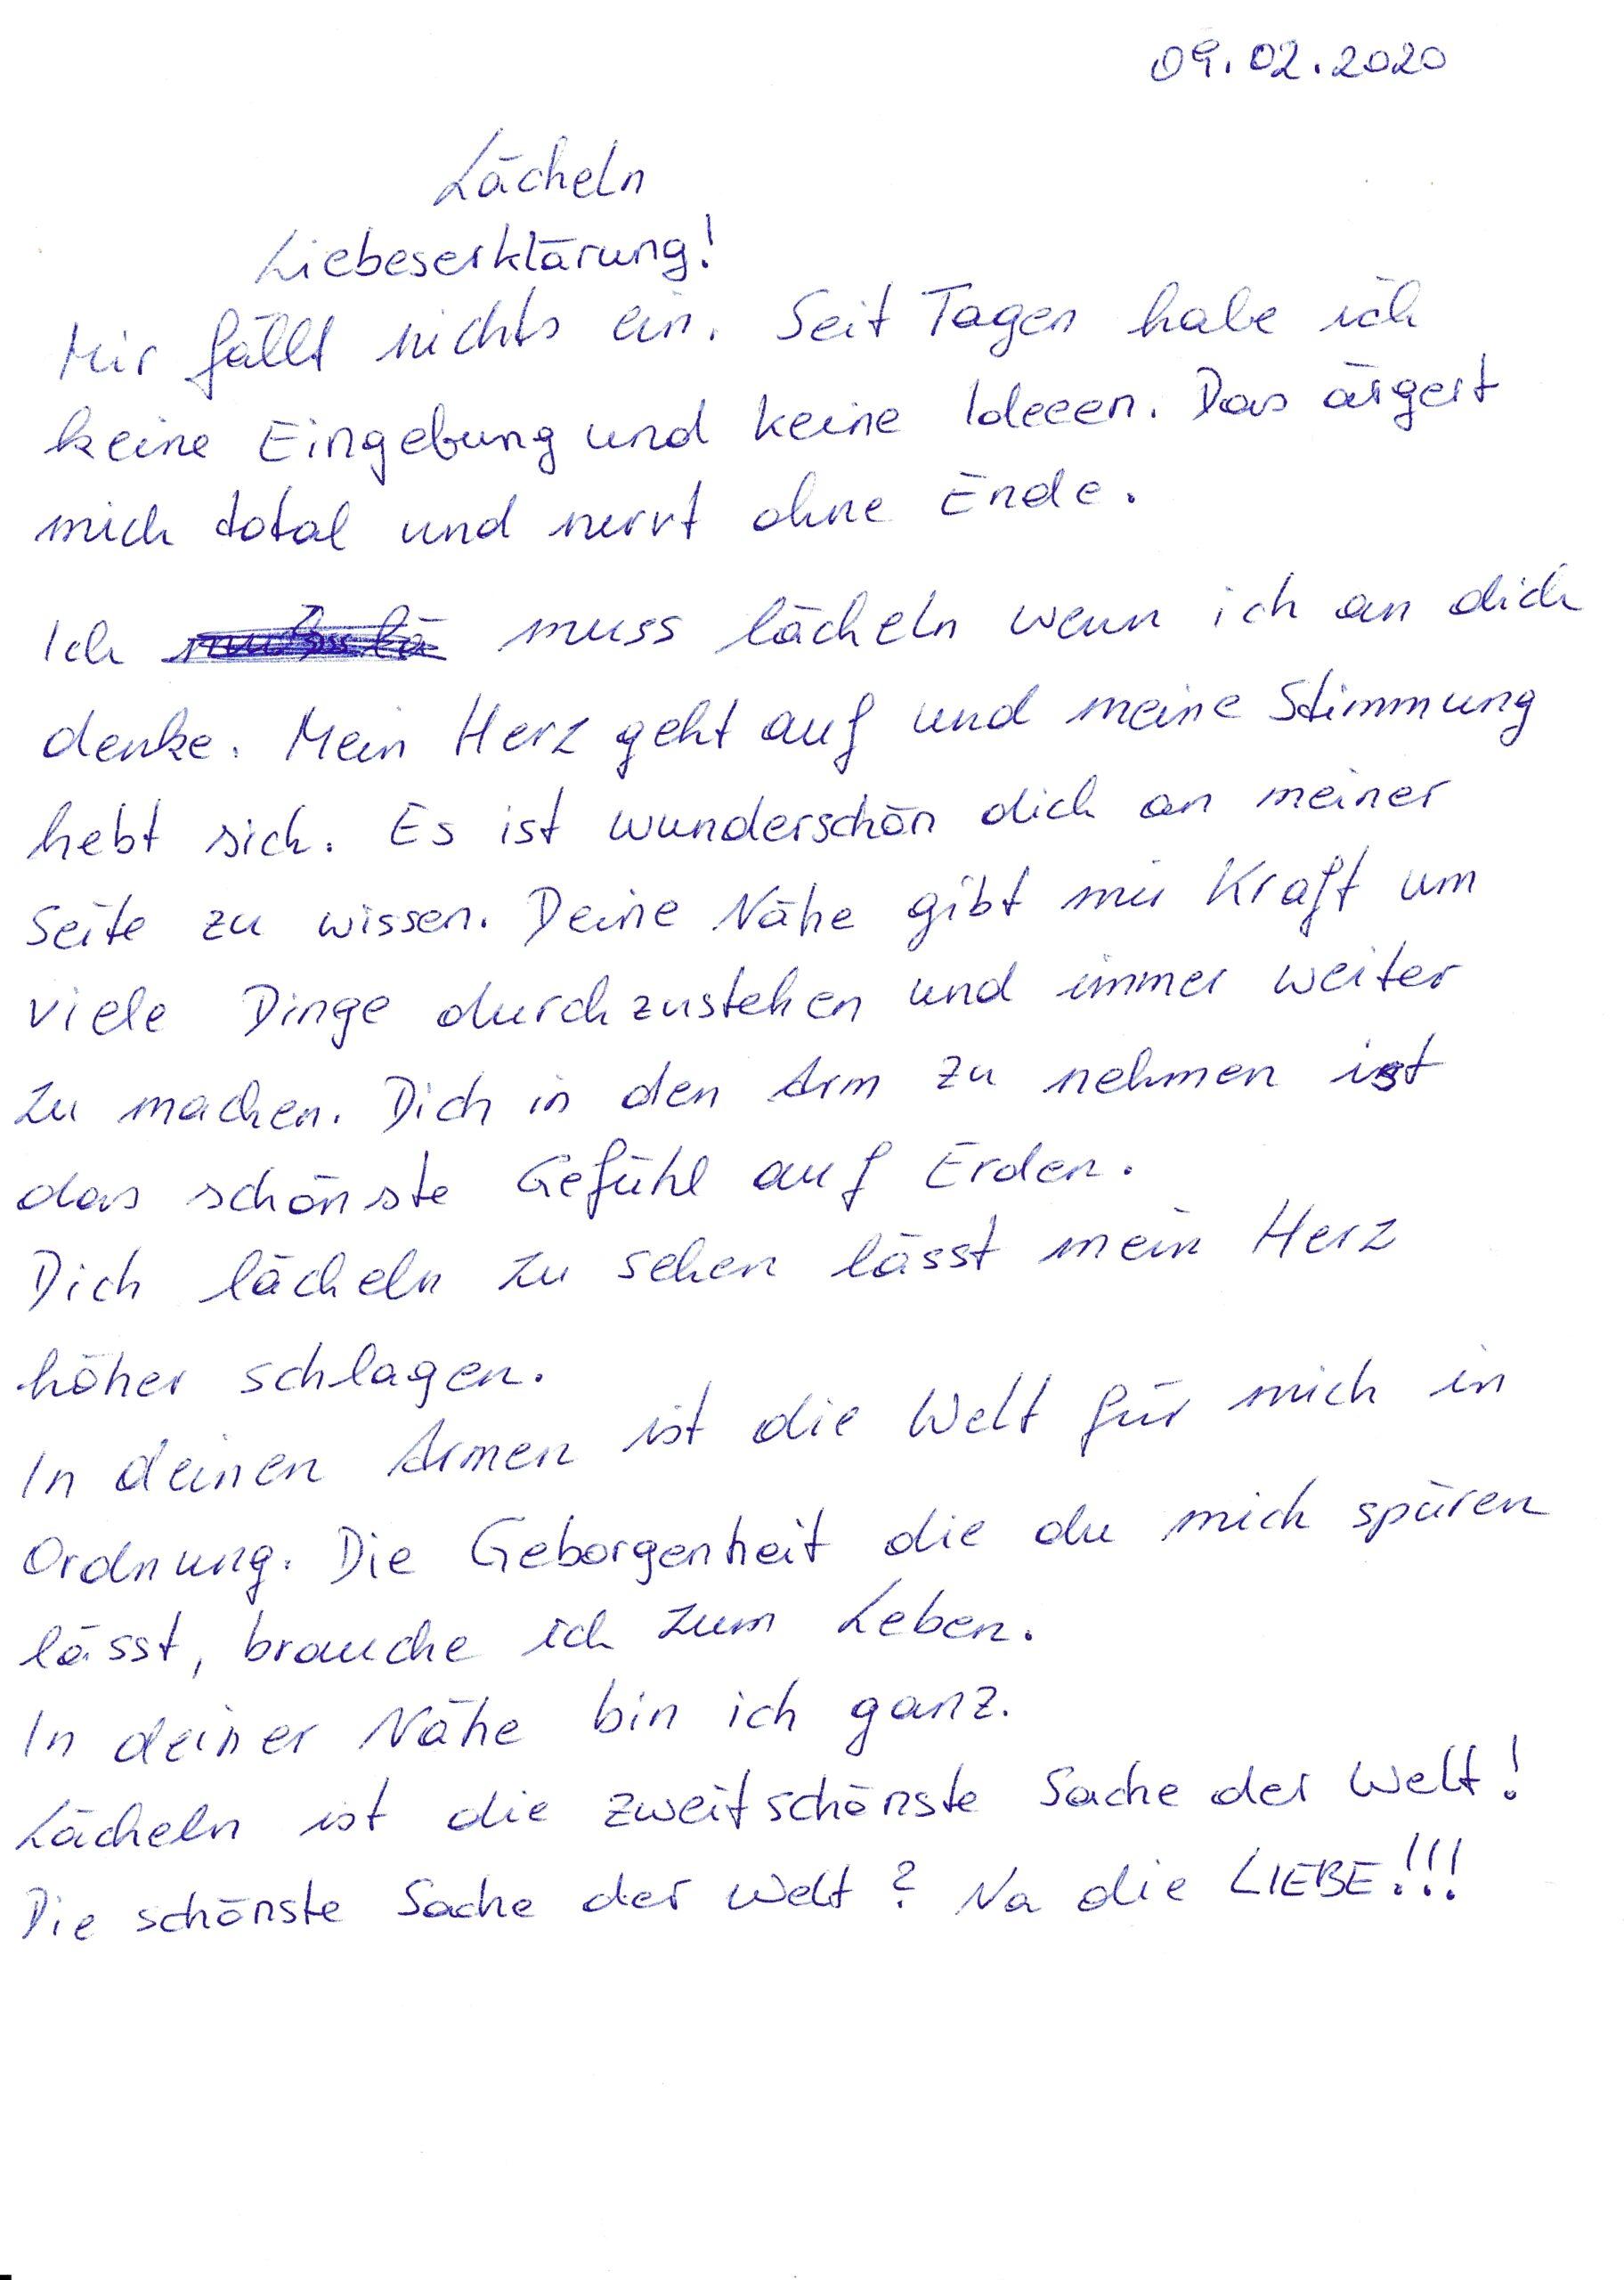 09.02.2020
Lächeln
Liebeserklärung!
Mir fällt nichts ein. Seit Tagen habe ich
keine Eingebung und keine Ideeen. Das ärgert
mich total und nervt ohne Ende.
Ich muss lächeln wenn ich an dich
denke. Mein Herz geht auf und meine Stimmung
hebt sich. Es ist wunderschön dich an meiner
Seite zu wissen. Deine Nähe gibt mir Kraft um
viele Dinge durchzustehen und immer weiter
zu machen. Dich in den Arm zu nehmen ist
das schönste Gefühl auf Erden.
Dich lächeln zu sehen lässt mein Herz
höher schlagen.
In deinen Armen ist die Welt für mich in
Ordnung. Die Geborgenheit die du mich spüren
lässt, brauche ich zum Leben.
In deiner Nähe bin ich ganz.
Lächeln ist die zweitschönste Sache der Welt!
Die schönste Sache der Welt? Na die LIEBE!!!